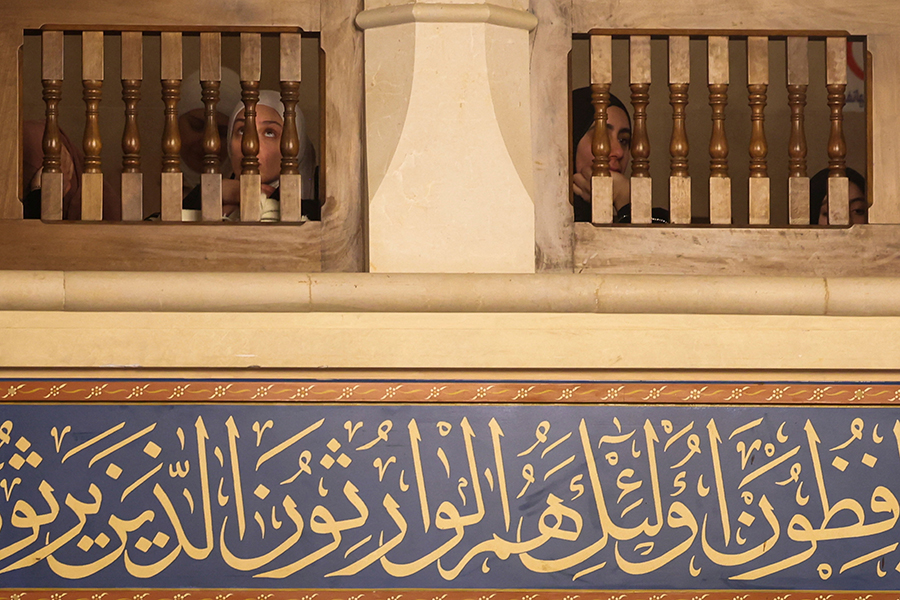 فِظُونَ أُولَٰئِكَ هُمُ الْوَارِثُونَ الَّذِينَ يَرِثُو